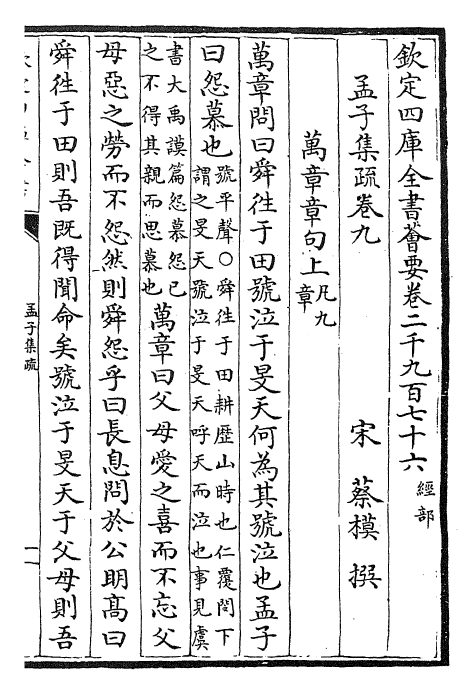 欽定四庫全書薈要卷二千九百七十六 經部
孟子集疏卷九
宋 蔡模 撰
萬章章句上 凡九
章
萬章問曰舜往于田號泣于旻天何為其號泣也孟子
曰怨慕也
號平聲○舜往于田耕歴山時也仁覆閔下
謂之旻天號泣于旻天呼天而泣也事見虞
書大禹謨篇怨慕怨己
之不得其親而思慕也
萬章曰父母愛之喜而不忘父
母惡之勞而不怨然則舜怨乎曰長息問於公明髙曰
舜往于田則吾既得聞命矣號泣于旻天于父母則吾
孟子集疏
一